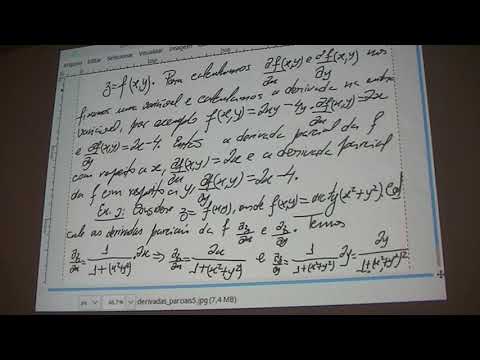 Arquivo Editar Selecionar Visualizar Imagem
z=f(x,y). Para calcularmos ∂f/∂x(x,y) e ∂f/∂y(x,y) nós
fixamos uma variável e calculamos a derivada na outra
variável, por exemplo f(x,y)=2xy-4y. ∂f/∂x(x,y)=2x
e ∂f/∂y(x,y)=2x-4. Então a derivada parcial da f
com respeito a x, ∂f/∂x(x,y)=2x e a derivada parcial
da f com respeito a y, ∂f/∂y(x,y)=2x-4.
Ex. 2: Considere z=f(x,y), onde f(x,y)=arctg(x²+y²).
cule as derivadas parciais da f ∂z/∂x e ∂z/∂y. Temos
∂z/∂x=1/(1+(x²+y²)²).2x ⇒ ∂z/∂x=2x/(1+(x²+y²)²) e ∂z/∂y=1/(1+(x²+y²)²).2y=2y/(1+(x²+y²)²)
px 66,7% derivadas_parciais5.jpg (7,4 MB)